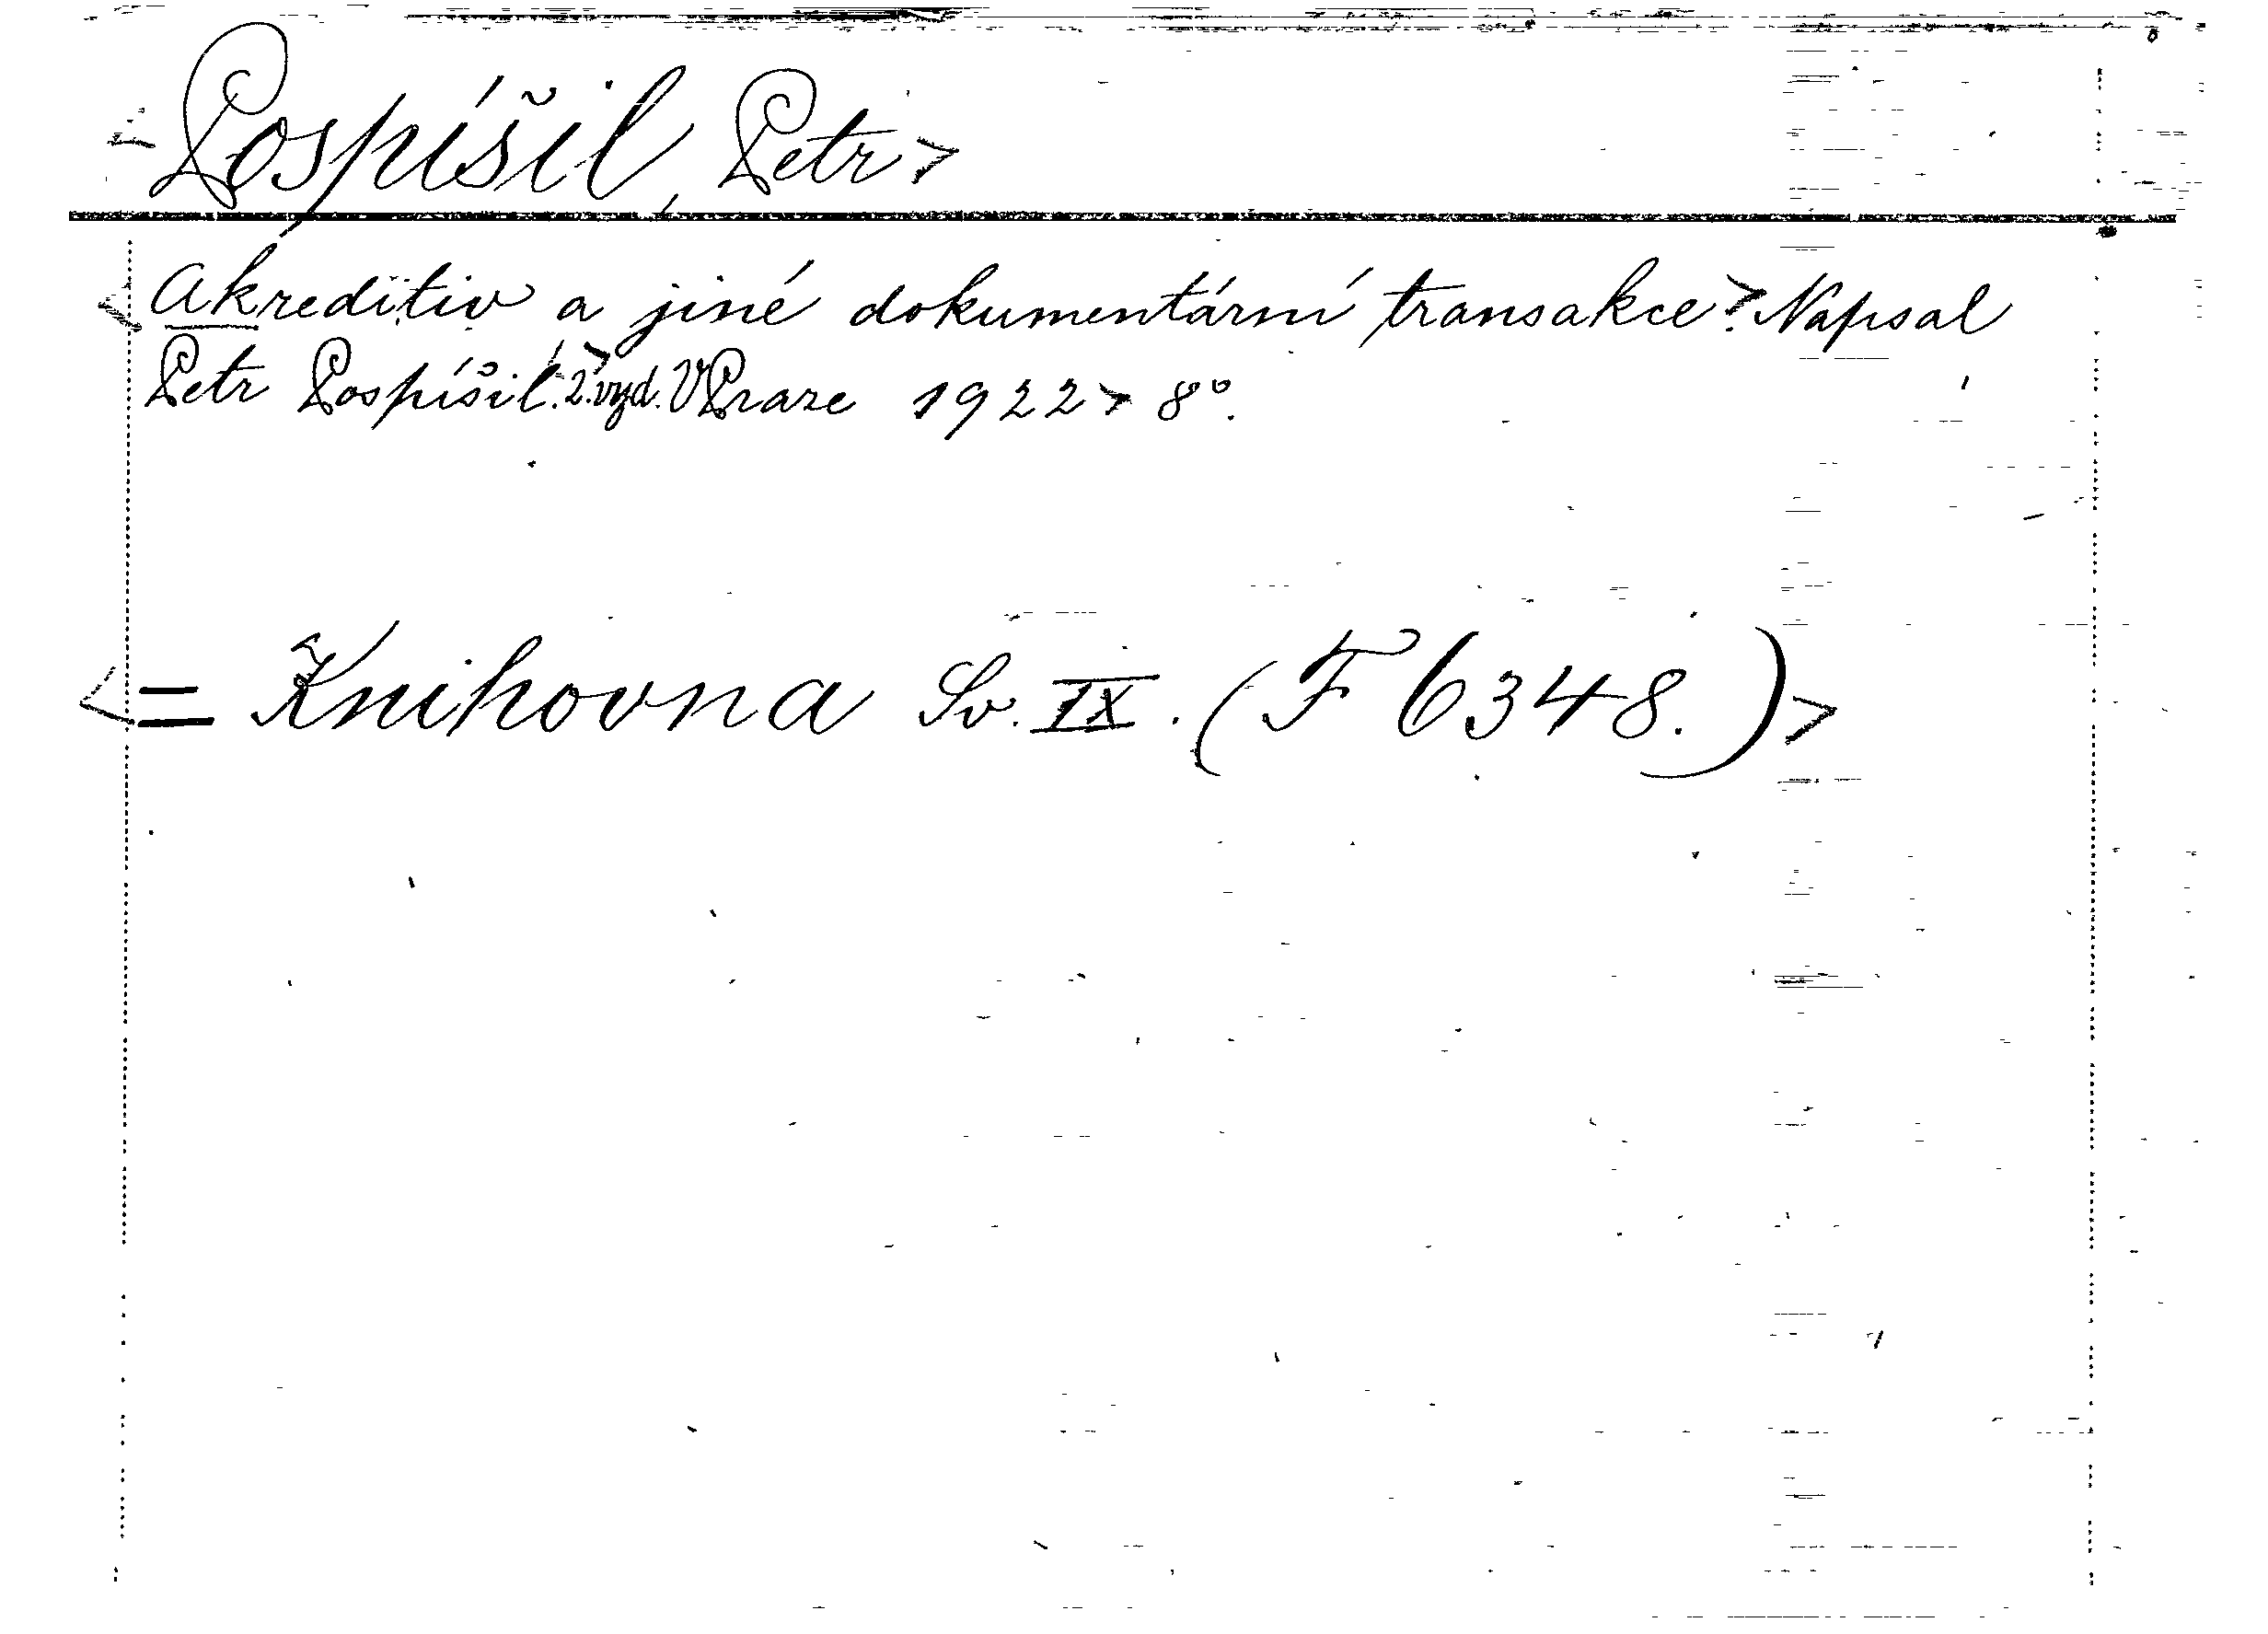 Pospíšil, Petr>
<Akreditiv a jiné dokumentární transakce>. Napsal
Petr Pospíšil. 2. vyd. V Praze 1922> 8°.
<= Knihovna Sv. IX. (F 6348.)>